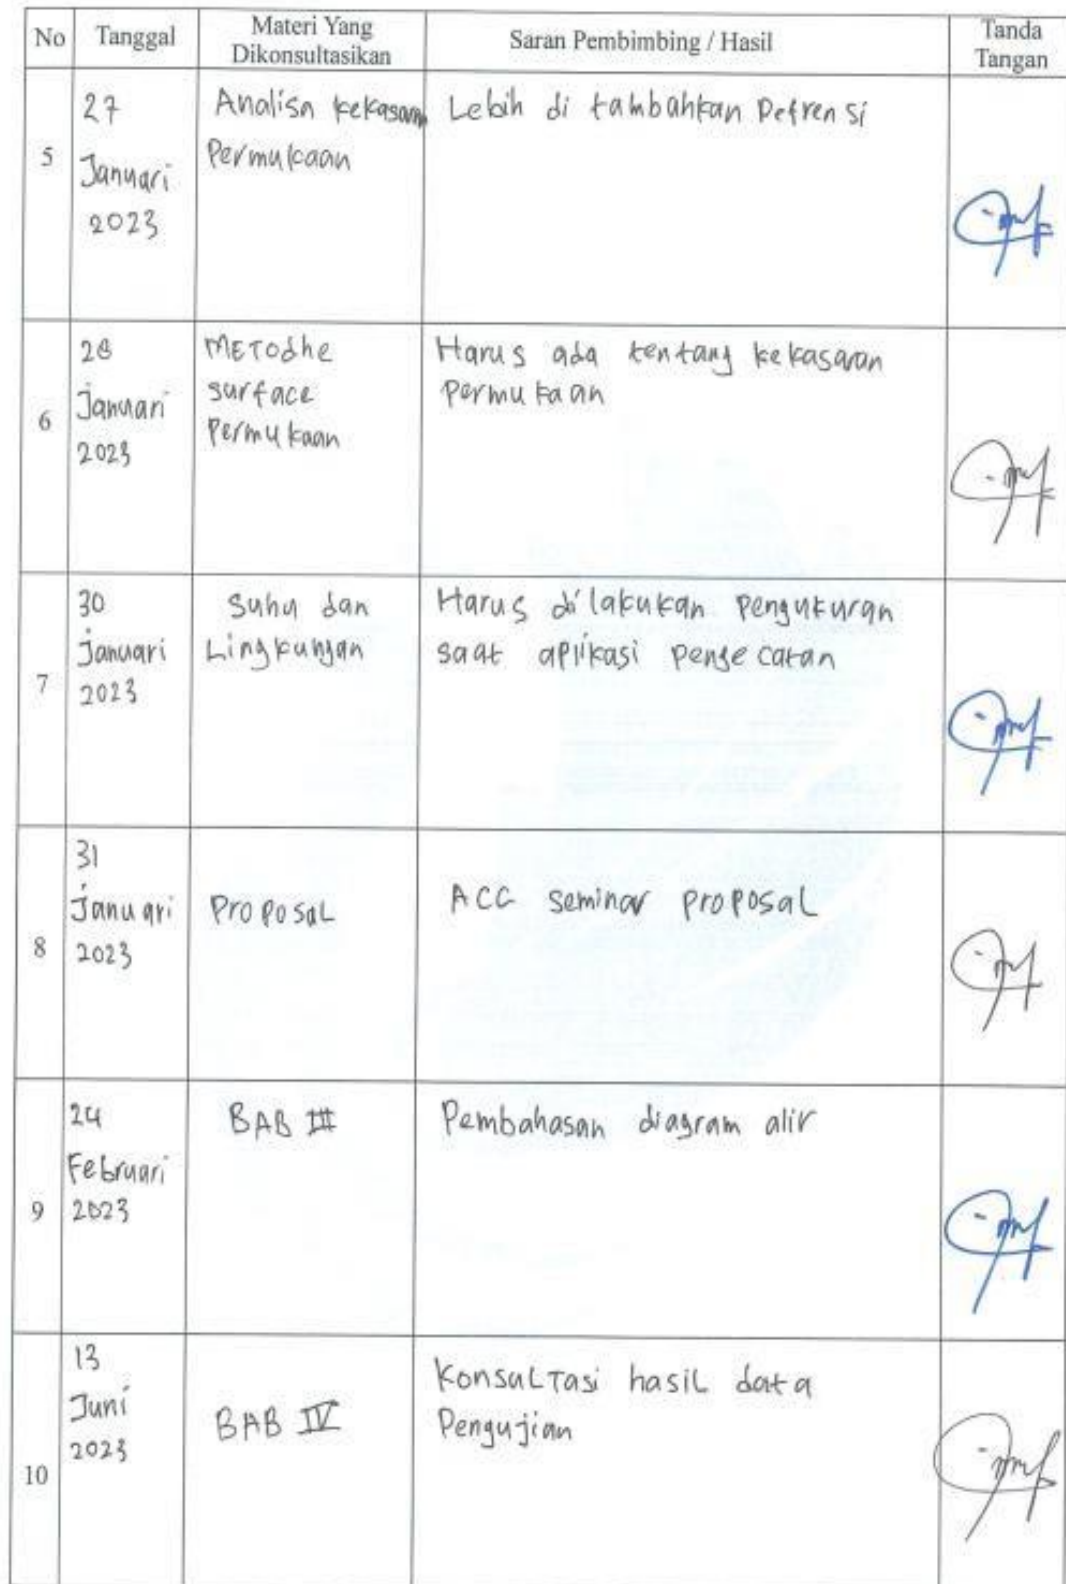 No Tanggal Materi Yang Dikonsultasikan Saran Pembimbing / Hasil Tanda Tangan
5
27
Januari
2023
Analisa kekasaran
Permukaan
Lebih di tambahkan Refrensi
6
28
Januari
2023
METodhe
surface
Permukaan
Harus ada tentang kekasaran
Permukaan
7
30
Januari
2023
Suhu dan
Lingkungan
Harus dilakukan Pengukuran
saat aplikasi Pengecatan
8
31
Januari
2023
Proposal
ACC seminar proposal
9
24
Februari
2023
BAB III
Pembahasan diagram alir
10
13
Juni
2023
BAB IV
Konsultasi hasil data
Pengujian